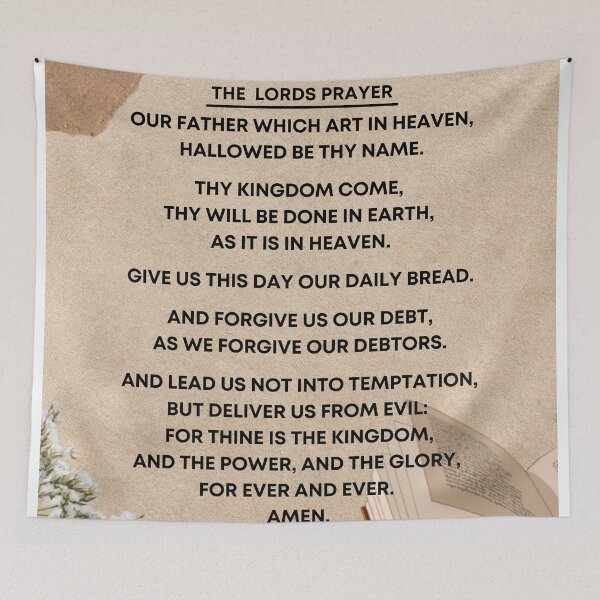 THE LORDS PRAYER
OUR FATHER WHICH ART IN HEAVEN,
HALLOWED BE THY NAME.
THY KINGDOM COME,
THY WILL BE DONE IN EARTH,
AS IT IS IN HEAVEN.
GIVE US THIS DAY OUR DAILY BREAD.
AND FORGIVE US OUR DEBT,
AS WE FORGIVE OUR DEBTORS.
AND LEAD US NOT INTO TEMPTATION,
BUT DELIVER US FROM EVIL:
FOR THINE IS THE KINGDOM,
AND THE POWER, AND THE GLORY,
FOR EVER AND EVER.
AMEN.